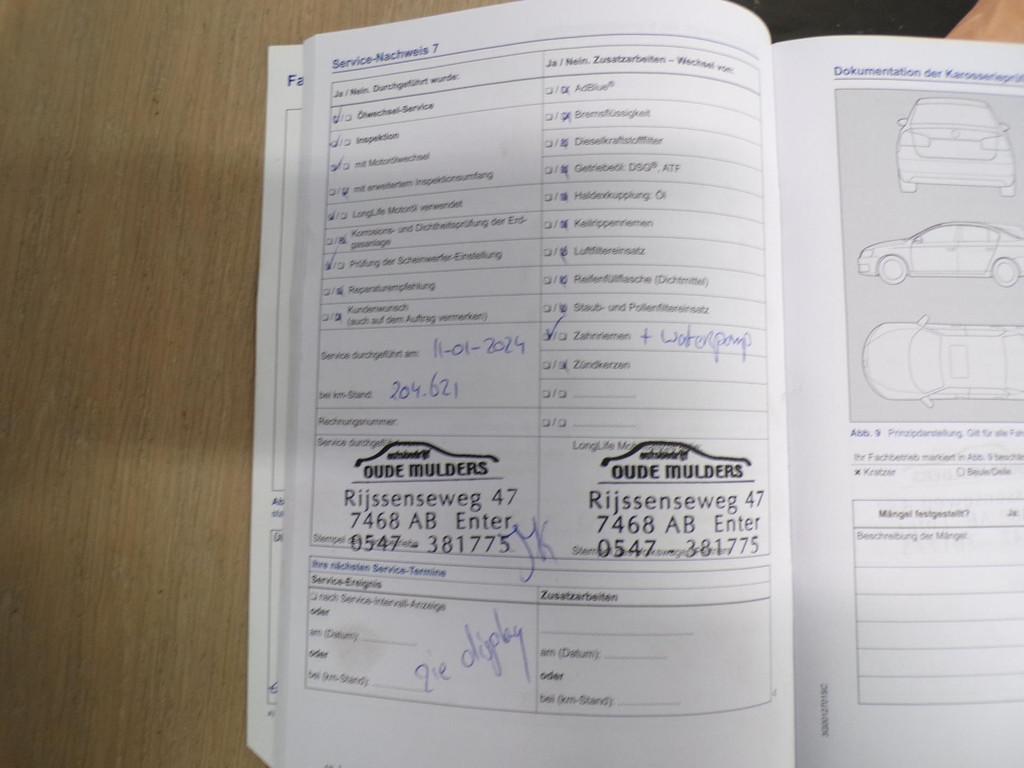 Fa
Service-Nachweis 7
Ja / Nein. Durchgeführt wurde:
Ölwechsel-Service
Inspektion
mit Motorölwechsel
mit erweitertem Inspektionsumfang
LongLife Motoröl verwendet
Korrosions- und Dichtheitsprüfung der Erd-
gasanlage
Prüfung der Scheinwerfer-Einstellung
Reparaturempfehlung
Kundenwunsch
(auch auf dem Auftrag vermerken)
Service durchgeführt am: 11-01-2024
bei km-Stand: 204.621
Rechnungsnummer:
Service durchgeführt
autobedrijf
OUDE MULDERS
Rijssenseweg 47
7468 AB Enter
0547 - 381775
Stempel
Ja / Nein. Zusatzarbeiten – Wechsel von:
AdBlue®
Bremsflüssigkeit
Dieselkraftstofffilter
Getriebeöl: DSG®, ATF
Haldexkupplung: Öl
Keilrippenriemen
Luftfiltereinsatz
Reifenfüllflasche (Dichtmittel)
Staub- und Pollenfiltereinsatz
Zahnriemen + waterpomp
Zündkerzen
LongLife
autobedrijf
OUDE MULDERS
Rijssenseweg 47
7468 AB Enter
0547 - 381775
Ihre nächsten Service-Termine
Service-Ereignis
nach Service-Intervall-Anzeige
oder
am (Datum):
oder
bei (km-Stand):
zie display
Zusatzarbeiten
am (Datum):
oder
bei (km-Stand):
Dokumentation der Karosserieprü
Abb. 9 Prinzipdarstellung. Gilt für alle Fah
Ihr Fachbetrieb markiert in Abb. 9 beschä
× Kratzer
Beule/Delle
Mängel festgestellt? Ja:
Beschreibung der Mängel: